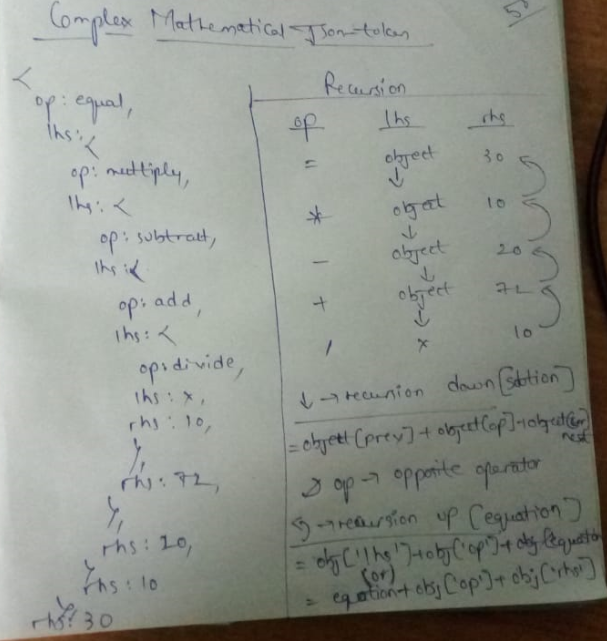 Complex Mathematical Json-token
5
{
op: equal,
lhs: {
op: multiply,
lhs: {
op: subtract,
lhs: {
op: add,
lhs: {
op: divide,
lhs: x,
rhs: 10,
},
rhs: 72,
},
rhs: 20,
}
rhs: 10
}
rhs: 30
Recursion
op lhs rhs
= object 30
↓
* object 10
↓
- object 20
↓
+ object 72
↓
/ x 10
↓ → recursion down [solution]
= object[prev] + object[op] + object[ ] next
op → opposite operator
→ recursion up [equation]
= obj['lhs'] + obj['op'] + obj[equation
(or)
= equation + obj['op'] + obj['rhs']